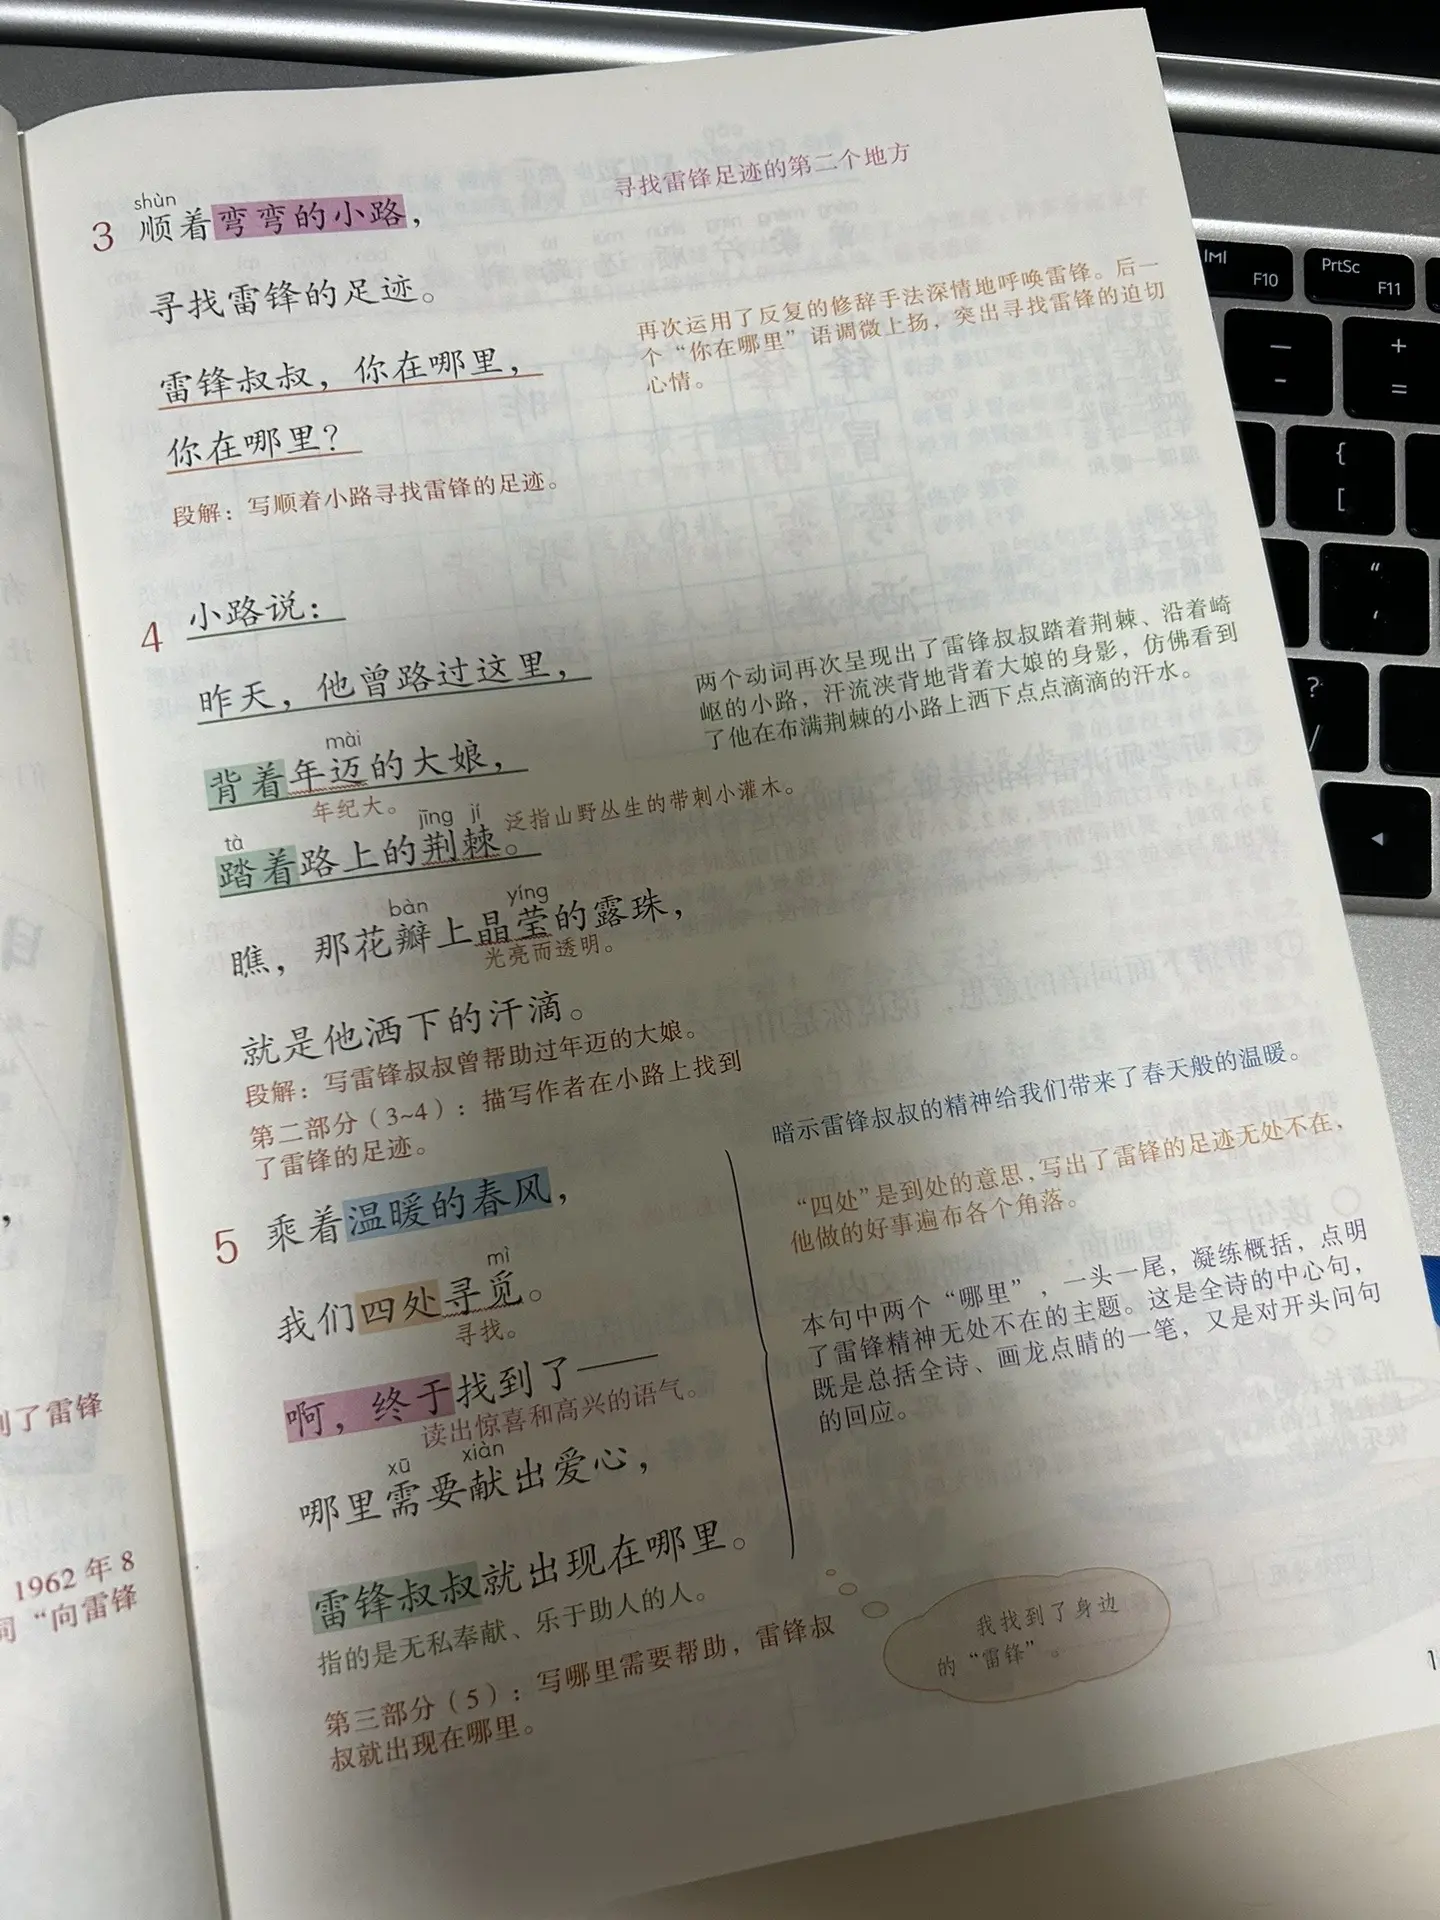 寻找雷锋足迹的第二个地方
shùn
3 顺着弯弯的小路，
寻找雷锋的足迹。
再次运用了反复的修辞手法深情地呼唤雷锋。后一
个“你在哪里”语调微上扬，突出寻找雷锋的迫切
心情。
雷锋叔叔，你在哪里，
你在哪里？
段解：写顺着小路寻找雷锋的足迹。
4 小路说：
昨天，他曾路过这里，
两个动词再次呈现出了雷锋叔叔踏着荆棘、沿着崎
岖的小路，汗流浃背地背着大娘的身影，仿佛看到
了他在布满荆棘的小路上洒下点点滴滴的汗水。
mài
背着年迈的大娘，
年纪大。
tà jīng jí
泛指山野丛生的带刺小灌木。
踏着路上的荆棘。
bàn yíng
瞧，那花瓣上晶莹的露珠，
光亮而透明。
就是他洒下的汗滴。
段解：写雷锋叔叔曾帮助过年迈的大娘。
第二部分（3~4）：描写作者在小路上找到
了雷锋的足迹。
暗示雷锋叔叔的精神给我们带来了春天般的温暖。
5 乘着温暖的春风，
“四处”是到处的意思，写出了雷锋的足迹无处不在，
他做的好事遍布各个角落。
mì
我们四处寻觅。
寻找。
本句中两个“哪里”，一头一尾，凝练概括，点明
了雷锋精神无处不在的主题。这是全诗的中心句，
既是总括全诗、画龙点睛的一笔，又是对开头问句
的回应。
啊，终于找到了——
读出惊喜和高兴的语气。
xū xiàn
哪里需要献出爱心，
雷锋叔叔就出现在哪里。
指的是无私奉献、乐于助人的人。
我找到了身边
的“雷锋”。
第三部分（5）：写哪里需要帮助，雷锋叔
叔就出现在哪里。
到了雷锋
1962 年 8
词“向雷锋
F10
PrtSc
F11